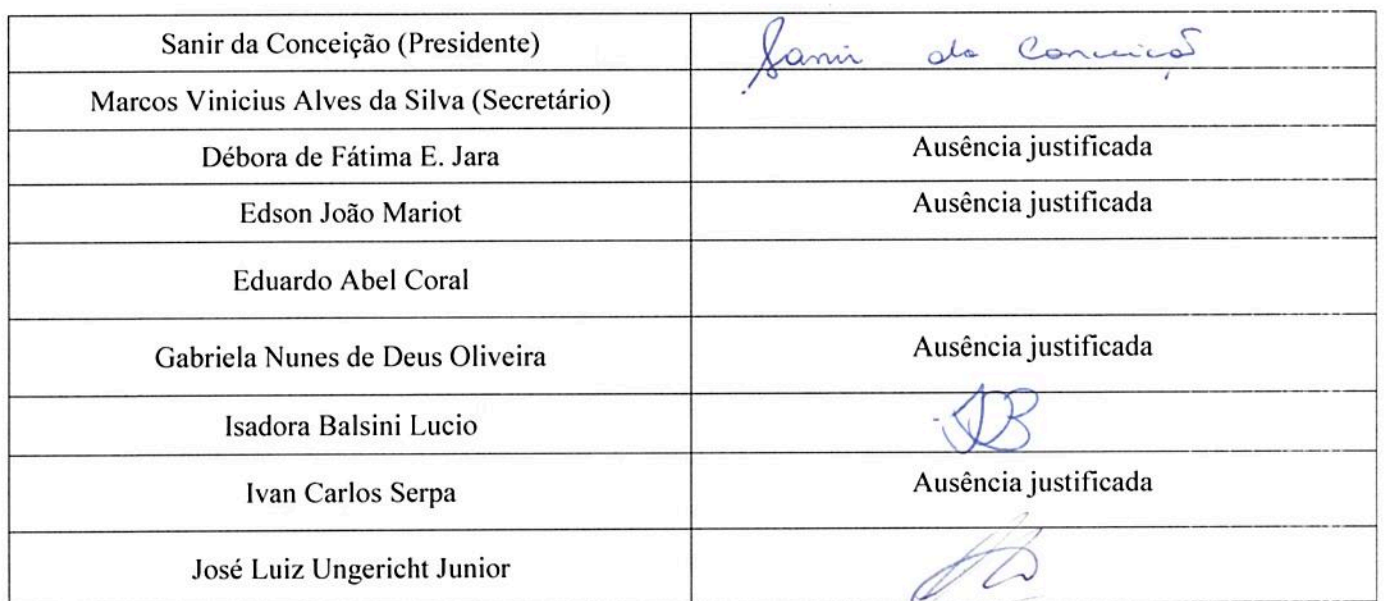 Sanir da Conceição (Presidente) Sanir da Conceição
Marcos Vinicius Alves da Silva (Secretário)
Débora de Fátima E. Jara Ausência justificada
Edson João Mariot Ausência justificada
Eduardo Abel Coral
Gabriela Nunes de Deus Oliveira Ausência justificada
Isadora Balsini Lucio
Ivan Carlos Serpa Ausência justificada
José Luiz Ungericht Junior